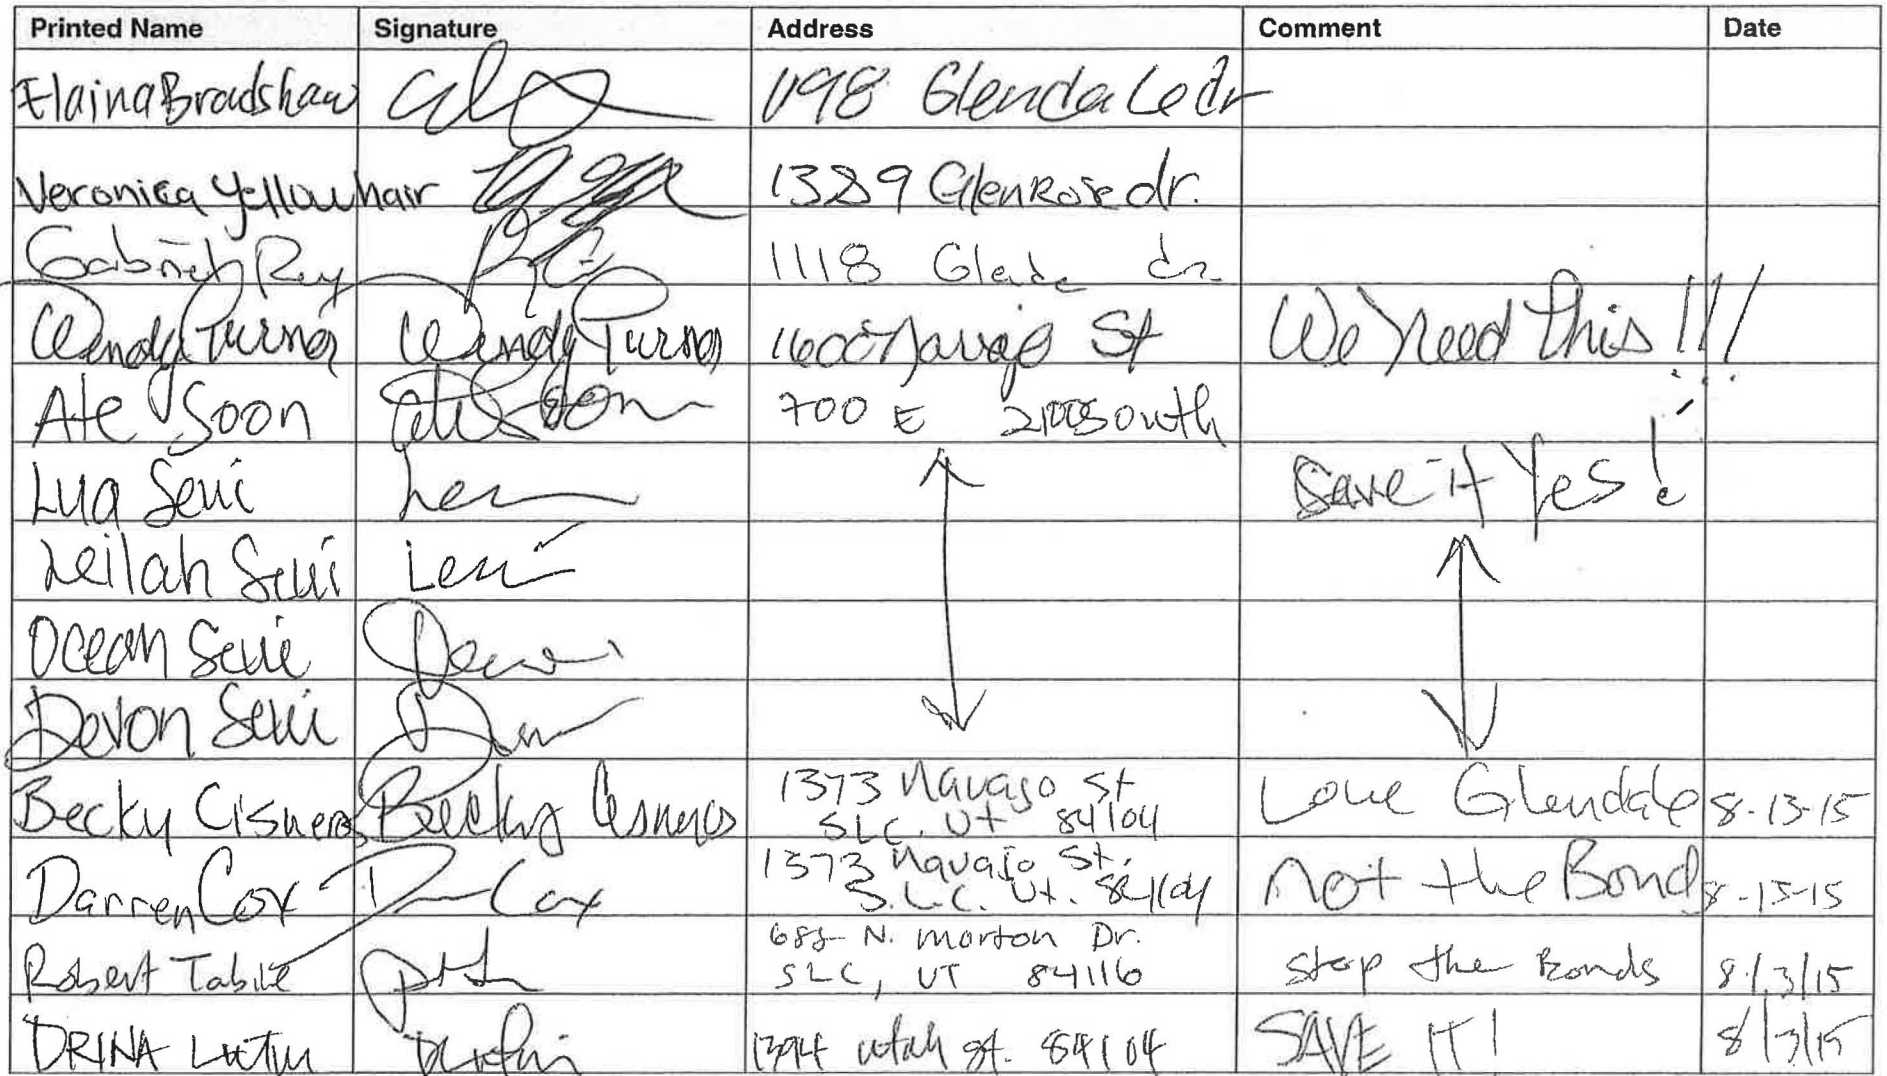 Printed Name Signature Address Comment Date
Elaina Bradshaw 1198 Glendale dr
Veronica Yellowhair 1389 Glenrose dr.
Gabriel Rey 1118 Glade dr.
Wendy Turner Wendy Turner 1600 Navajo St We need this!!!
Ate Soon Ate Soon 700 E 2100 South
Lua Seui Save it Yes!
Leilah Seui
Ocean Seui
Devon Seui
Becky Cisneros Becky Cisneros 1373 Navajo St Love Glendale 8-13-15
SLC, Ut 84104
Darren Cox Cox 1373 Navajo St. Not the Bond 8-13-15
S.L.C. Ut. 84104
Robert N. Morton Dr. Stop the Bonds 8/13/15
SLC, UT 84116
DRINA 1394 Utah St. 84104 SAVE IT! 8/13/15